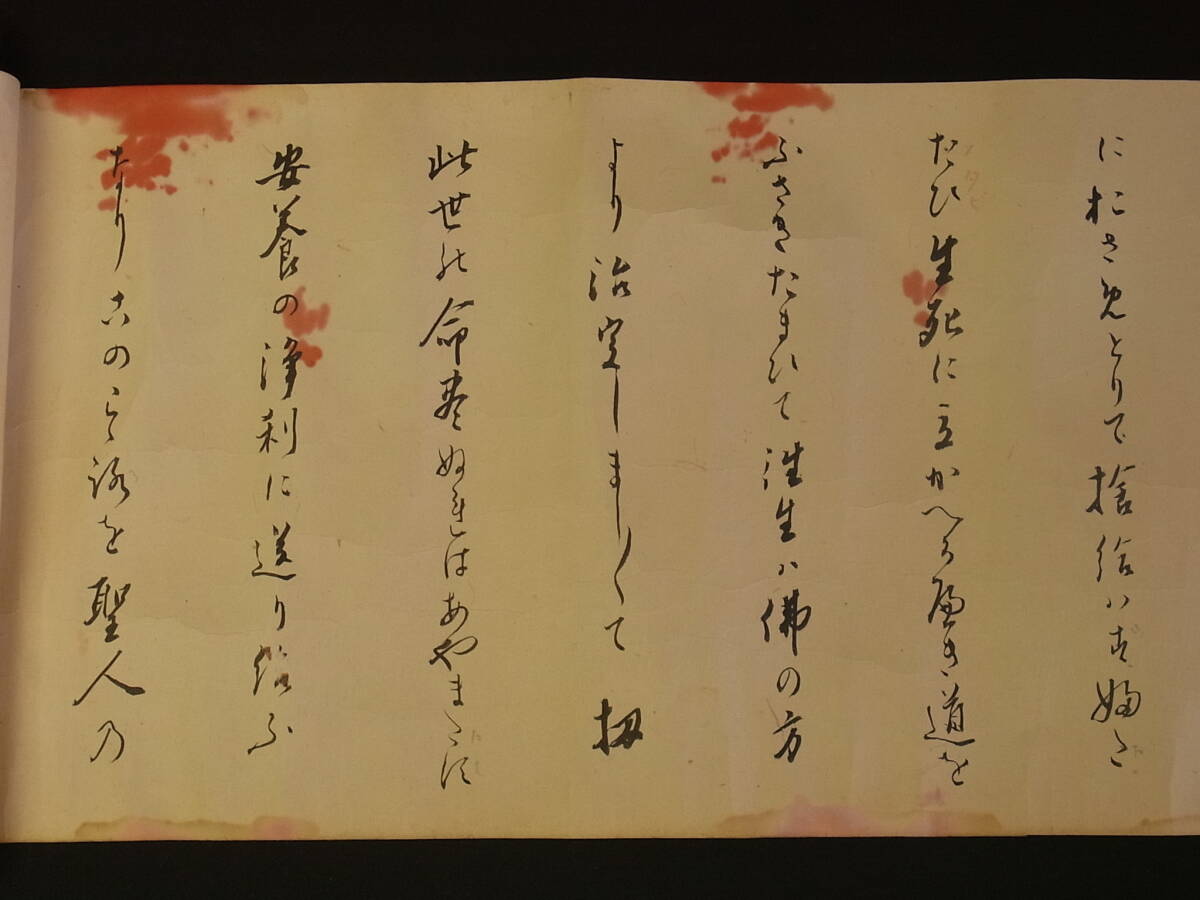 におさめとりて捨給はす婦たゝ
たひ生死に立かへるへき道を
ふさきたまひて往生は佛の方
より治定しましまして扨
此世の命尽ぬれはあやまたす
安養の浄刹に送り給ふ
なり このこゝろを聖人乃